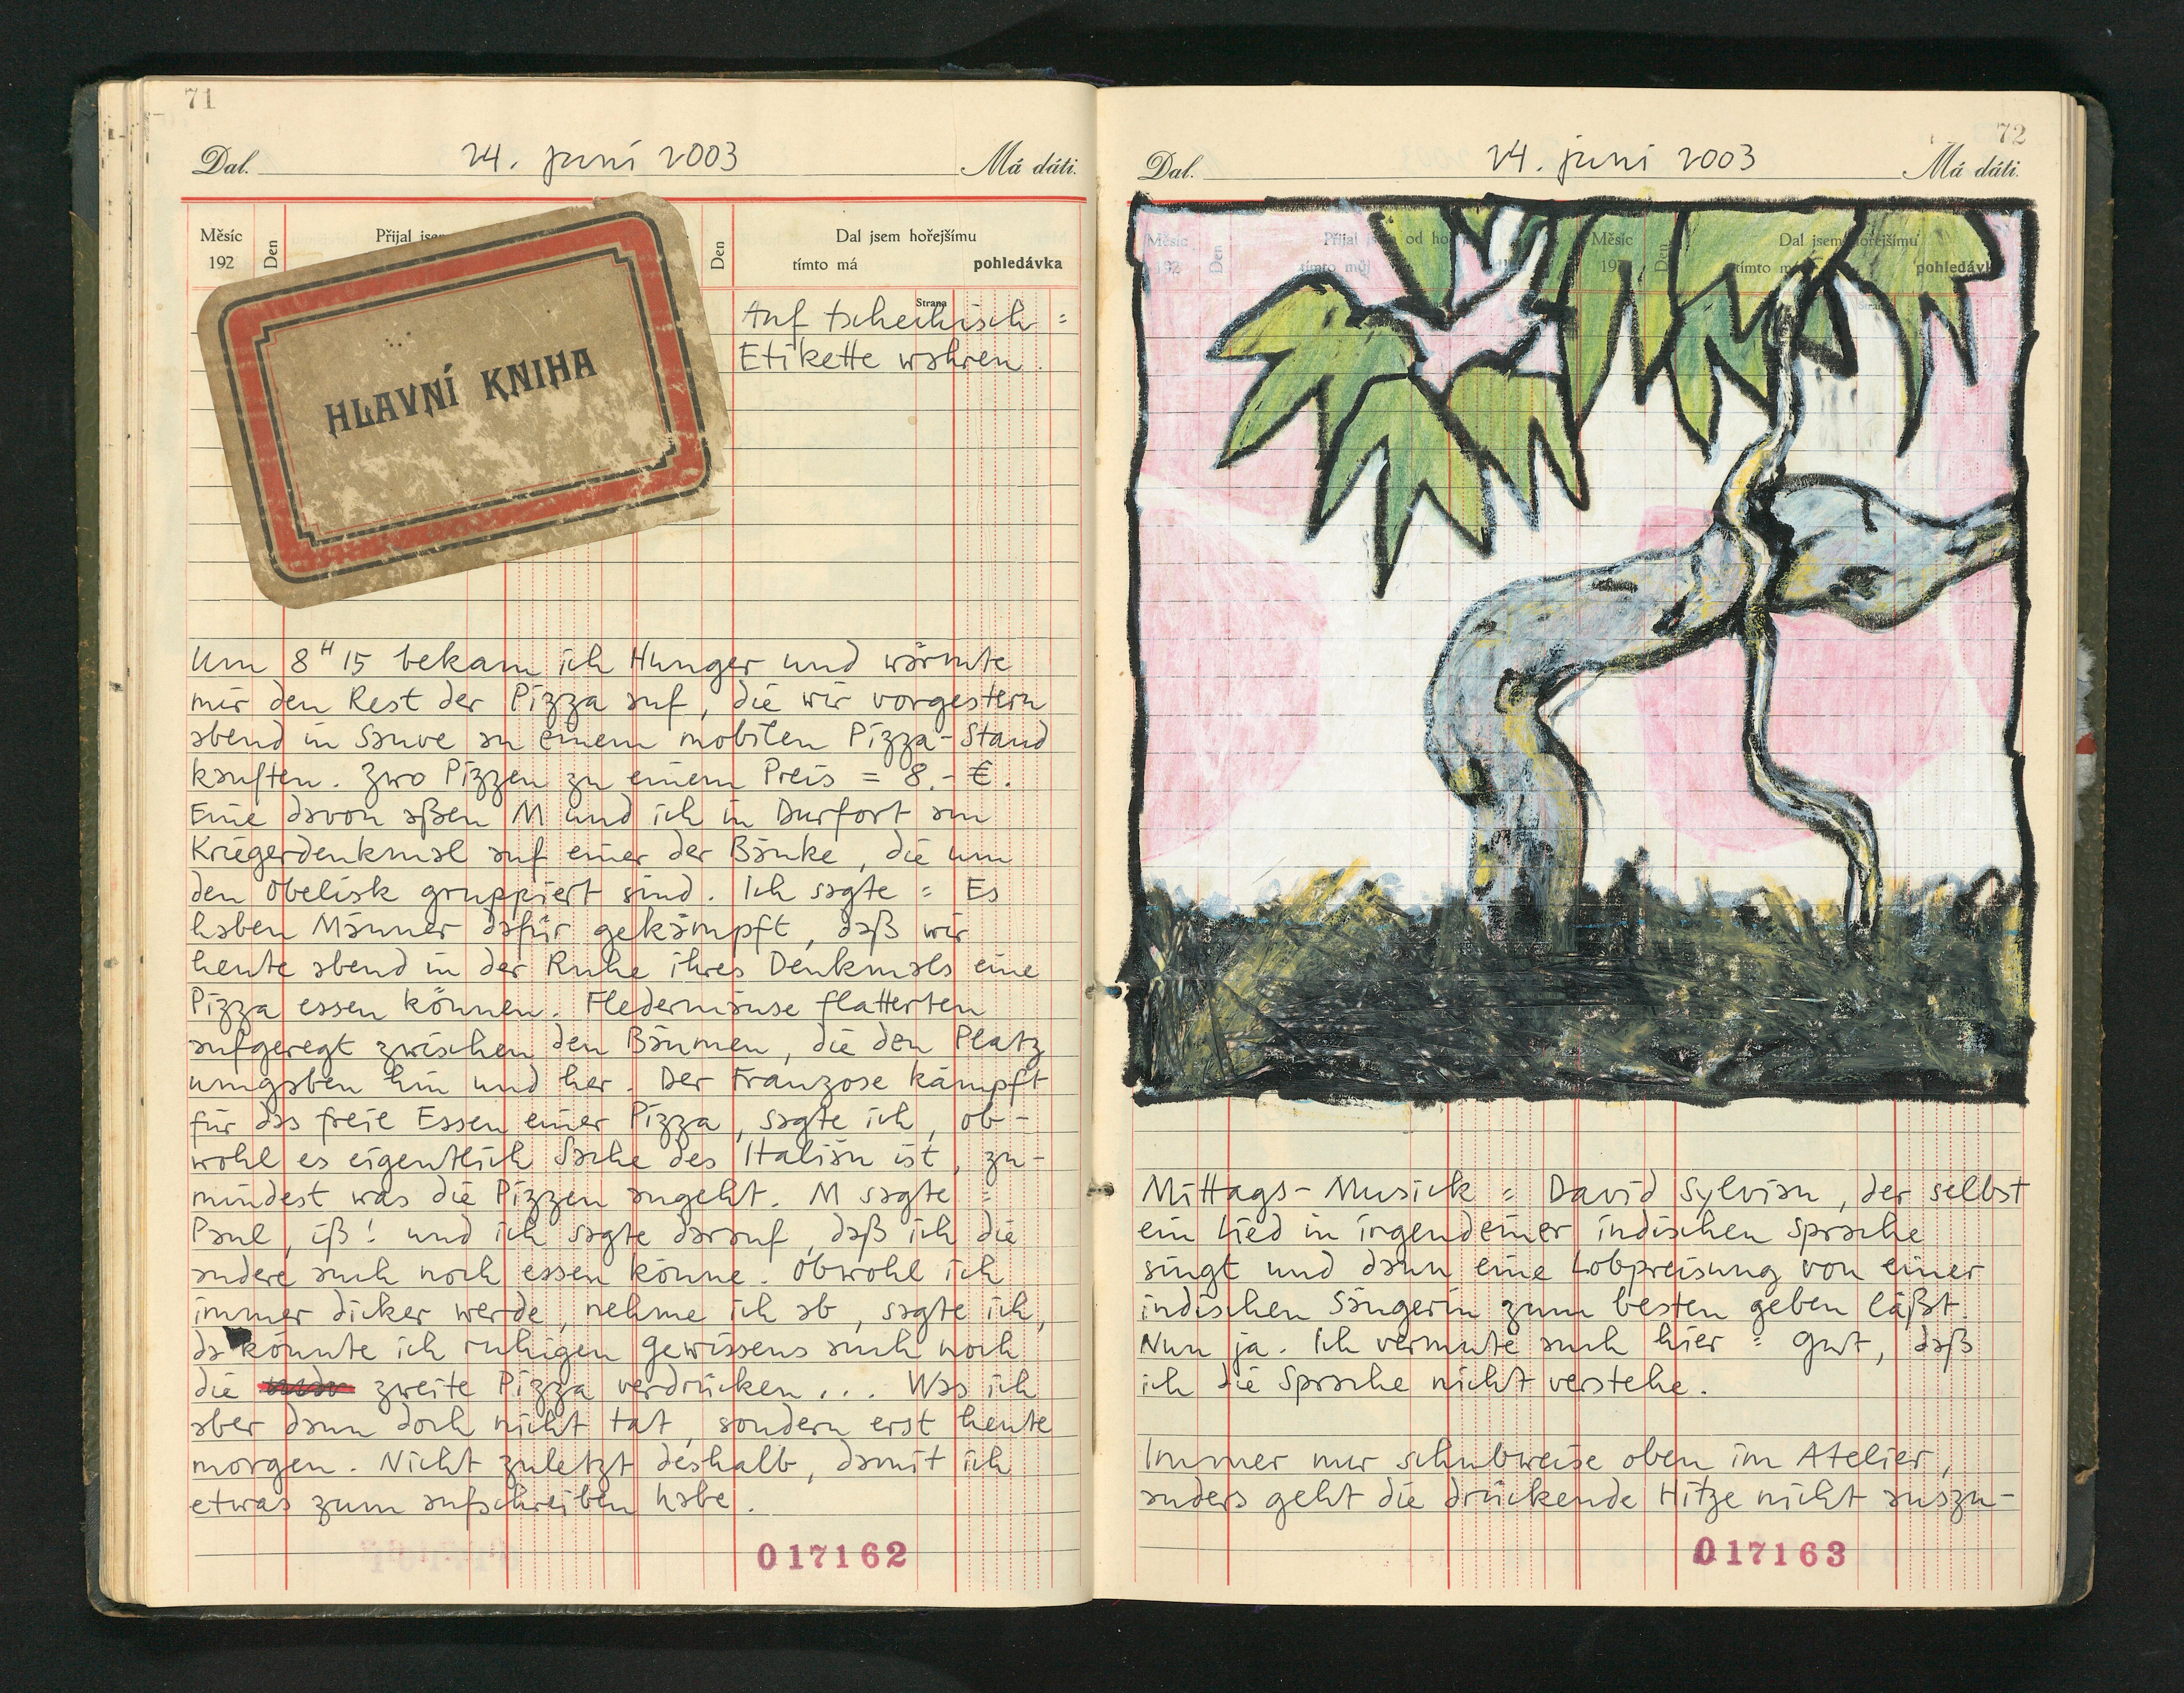 71
Dal. 24. juni 2003 Má dáti.
Měsíc
192
Den
Přijal jsem
Den
Dal jsem hořejšímu
tímto má pohledávka
Strana
HLAVNÍ KNIHA
Auf tschechisch =
Etikette wahren.
Um 8 H 15 bekam ich Hunger und wärmte
mir den Rest der Pizza auf, die wir vorgestern
abend in Sauve an einem mobilen Pizza-Stand
kauften. Zwo Pizzen zu einem Preis = 8.- €.
Eine davon aßen M und ich in Durfort am
Kriegerdenkmal auf einer der Bänke, die um
den Obelisk gruppiert sind. Ich sagte = Es
haben Männer dafür gekämpft, daß wir
heute abend in der Ruhe ihres Denkmals eine
Pizza essen können. Fledermäuse flatterten
aufgeregt zwischen den Bäumen, die den Platz
umgaben hin und her. Der Franzose kämpft
für das freie Essen einer Pizza, sagte ich, ob-
wohl es eigentlich Sache des Italian ist, zu-
mindest was die Pizzen angeht. M sagte =
Paul, iß! und ich sagte darauf, daß ich die
andere auch noch essen könne. Obwohl ich
immer dicker werde, nehme ich ab, sagte ich,
da könnte ich ruhigen Gewissens auch noch
die zweite Pizza verdrücken... Was ich
aber dann doch nicht tat, sondern erst heute
morgen. Nicht zuletzt deshalb, damit ich
etwas zum aufschreiben habe.
017162
72
Dal. 24. juni 2003 Má dáti.
Měsíc
192
Den
Přijal jsem od
tímto můj
Měsíc
192
Den
Dal jsem hořejšímu
tímto má pohledávka
Mittags-Musick = David Sylvian, der selbst
ein Lied in irgendeiner indischen Sprache
singt und dann eine Lobpreisung von einer
indischen Sängerin zum besten geben läßt.
Nun ja. Ich vermute auch hier = gut, daß
ich die Sprache nicht verstehe.
Immer nur schubweise oben im Atelier,
anders geht die drückende Hitze nicht auszu-
017163